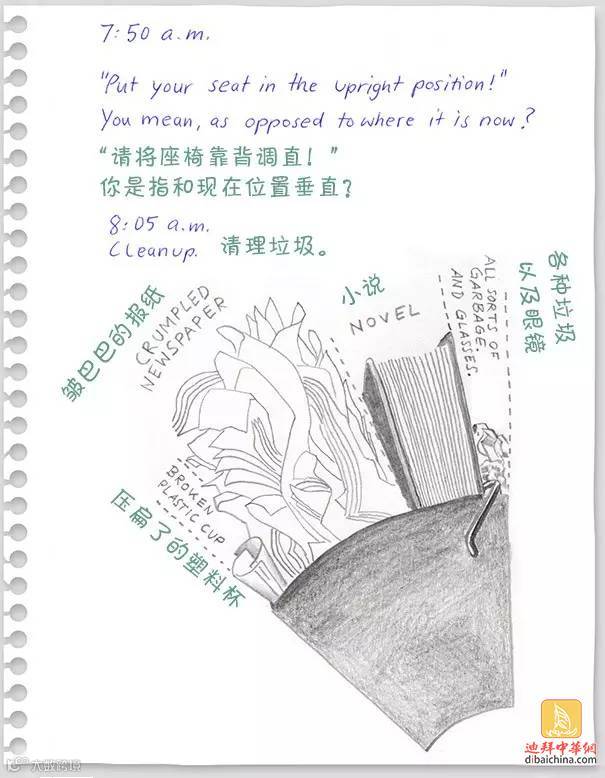 7:50 a.m.
"Put your seat in the upright position!"
You mean, as opposed to where it is now?
“请将座椅靠背调直！”
你是指和现在位置垂直？
8:05 a.m.
Cleanup. 清理垃圾。
皱巴巴的报纸
CRUMPLED
NEWSPAPER
小说
NOVEL
ALL SORTS OF
GARBAGE.
AND GLASSES.
各种垃圾
以及眼镜
BROKEN
PLASTIC CUP
压扁了的塑料杯
迪拜中華網
dibaichina.com
大数跨境